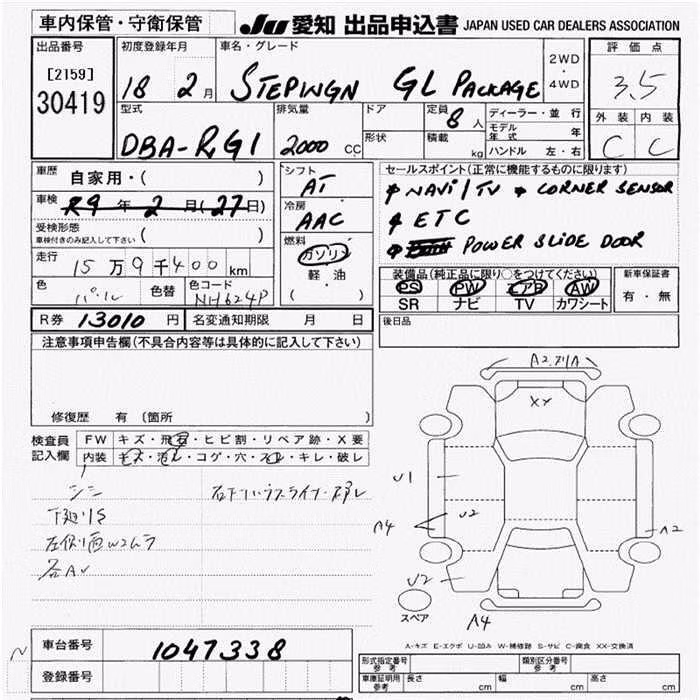 車内保管・守衛保管
JU 愛知 出品申込書 JAPAN USED CAR DEALERS ASSOCIATION
出品番号
[2159]
30419
初度登録年月
18 2月
車名・グレード
STEPWGN GL PACKAGE
2WD
・
4WD
評価点
3.5
外装 内装
C C
型式
DBA-RG1
排気量
2000 CC
ドア
形状
定員
8人
積載
kg
ディーラー・並行
モデル年式 年
ハンドル 左・右
車歴
自家用・( )
車検
R9年2月(27日)
受検形態
車検付きのみ記入して下さい ( )
走行
15万9千400km
色
パール
色替
色コード
NH624P
シフト
AT
冷房
AAC
燃料
ガソリン
軽・油
( )
セールスポイント(正常に機能するものに限ります)
NAVI/TV CORNER SENSOR
ETC
POWER SLIDE DOOR
装備品(純正品に限り○をつけてください)
PS PW エアB AW
SR ナビ TV カワシート
新車保証書
有・無
R券 13010円
名変通知期限 月 日
後日品
注意事項申告欄(不具合内容等は具体的に記入して下さい)
修復歴 有 (箇所
検査員
記入欄
FW キズ・飛石・ヒビ割・リペア跡・X要
内装 キズ・汚レ・コゲ・穴・スレ・キレ・破レ
シミ
下廻りS
各AU
A2
XX
U1
U2
A4
A2
U2
A4
スペア
A-キズ E-エクボ U-凹み W-補修跡 S-サビ C-腐食 XX-交換済
車台番号
1047338
登録番号
形式指定番号
参考
類別区分番号
参考
車庫証明用
参考
長さ cm 幅 cm 高さ cm